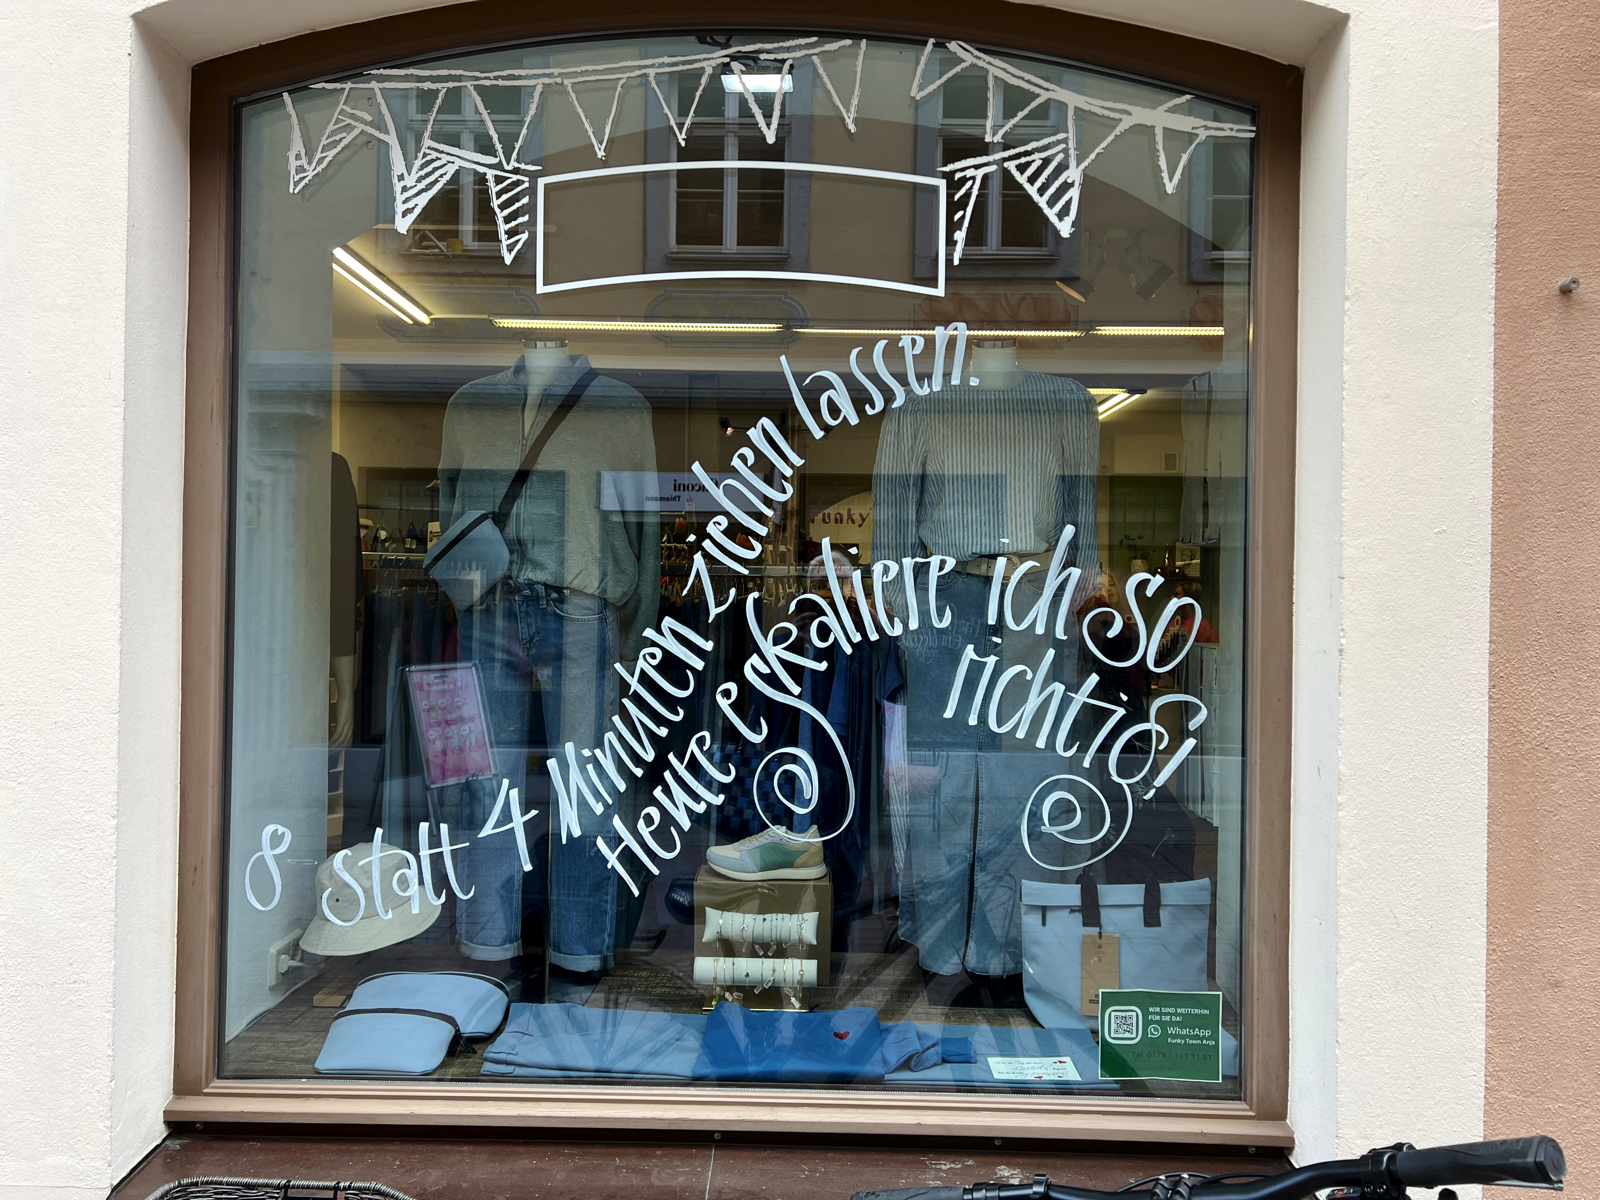 8 statt 4 Minuten ziehen lassen.
Heute eskaliere ich so
richtig!
Funky
by Thiemann
WIR SIND WEITERHIN
FÜR SIE DA!
WhatsApp
Funky Town Anja